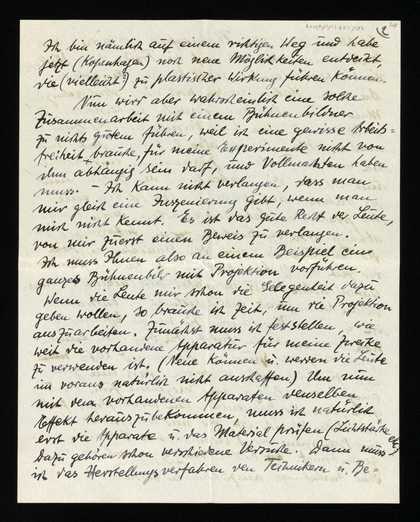 2
Ich bin nämlich auf einem richtigen Weg und habe
jetzt (Kopenhagen) noch neue Möglichkeiten entdeckt,
die (vielleicht?) zu plastischer Wirkung führen können.
Nun wird aber wahrscheinlich eine solche
Zusammenarbeit mit einem Bühnenbildner
zu nichts gutem führen, weil ich eine gewisse Arbeits-
freiheit brauche, für meine Experimente nicht von
ihm abhängig sein darf, und Vollmachten haben
muss. – Ich kann nicht verlangen, dass man
mir gleich eine Inszenierung gibt, wenn man
mich nicht kennt. Es ist das gute Recht der Leute,
von mir zuerst einen Beweis zu verlangen.
Ich muss Ihnen also an einem Beispiel ein
ganzes Bühnenbild mit Projektion vorführen.
Wenn die Leute mir schon die Gelegenheit dazu
geben wollen, so brauche ich Zeit, um die Projektion
auszuarbeiten. Zunächst muss ich feststellen, wie
weit die vorhandene Apparatur für meine Zwecke
zu verwenden ist. (Neue können u. werden die Leute
im voraus natürlich nicht anschaffen) Um nun
mit den vorhandenen Apparaten denselben
Effekt herauszubekommen, muss ich natürlich
erst die Apparate u. das Material prüfen (Lichtstärke etc)
Dazu gehören schon verschiedene Versuche. Dann muss
ich das Herstellungsverfahren den Technikern u. Be-